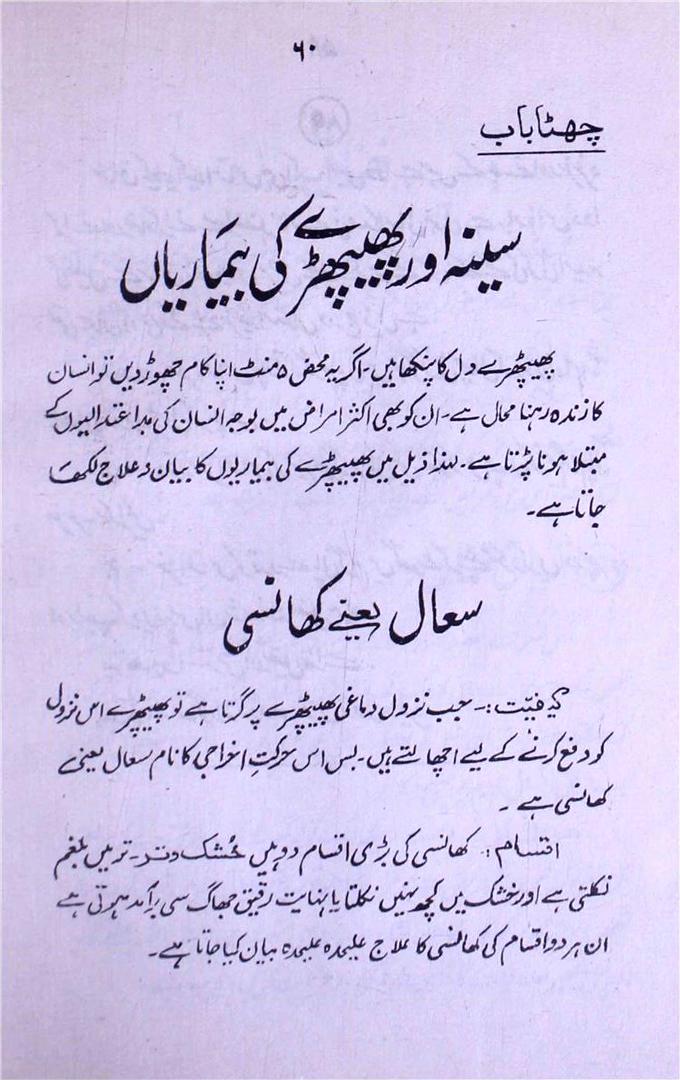 ۶۰
چھٹا باب
سینہ اور پھیپھڑے کی بیماریاں
پھیپھڑے دل کا پنکھا ہیں۔ اگر یہ محض ۵ منٹ اپنا کام چھوڑ دیں تو انسان
کا زندہ رہنا محال ہے۔ ان کو بھی اکثر امراض میں بوجہ انسان کی بداعتدالیوں کے
مبتلا ہونا پڑتا ہے۔ لہذا ذیل میں پھیپھڑے کی بیماریوں کا بیان و علاج لکھا
جاتا ہے۔
سعال یعنے کھانسی
کیفیت:۔ جب نزول دماغی پھیپھڑے پر گرتا ہے تو پھیپھڑے اس نزول
کو دفع کرنے کے لیے اچھالتے ہیں۔ بس اس حرکتِ اخراجی کا نام سعال یعنی
کھانسی ہے ۔
اقسام: کھانسی کی بڑی اقسام دو ہیں خُشک و تر۔ تر میں بلغم
نکلتی ہے اور خشک میں کچھ نہیں نکلتا یا نہایت رقیق جھاگ سی برآمد ہوتی ہے
ان ہر دو اقسام کی کھانسی کا علاج علیحدہ علیحدہ بیان کیا جاتا ہے۔